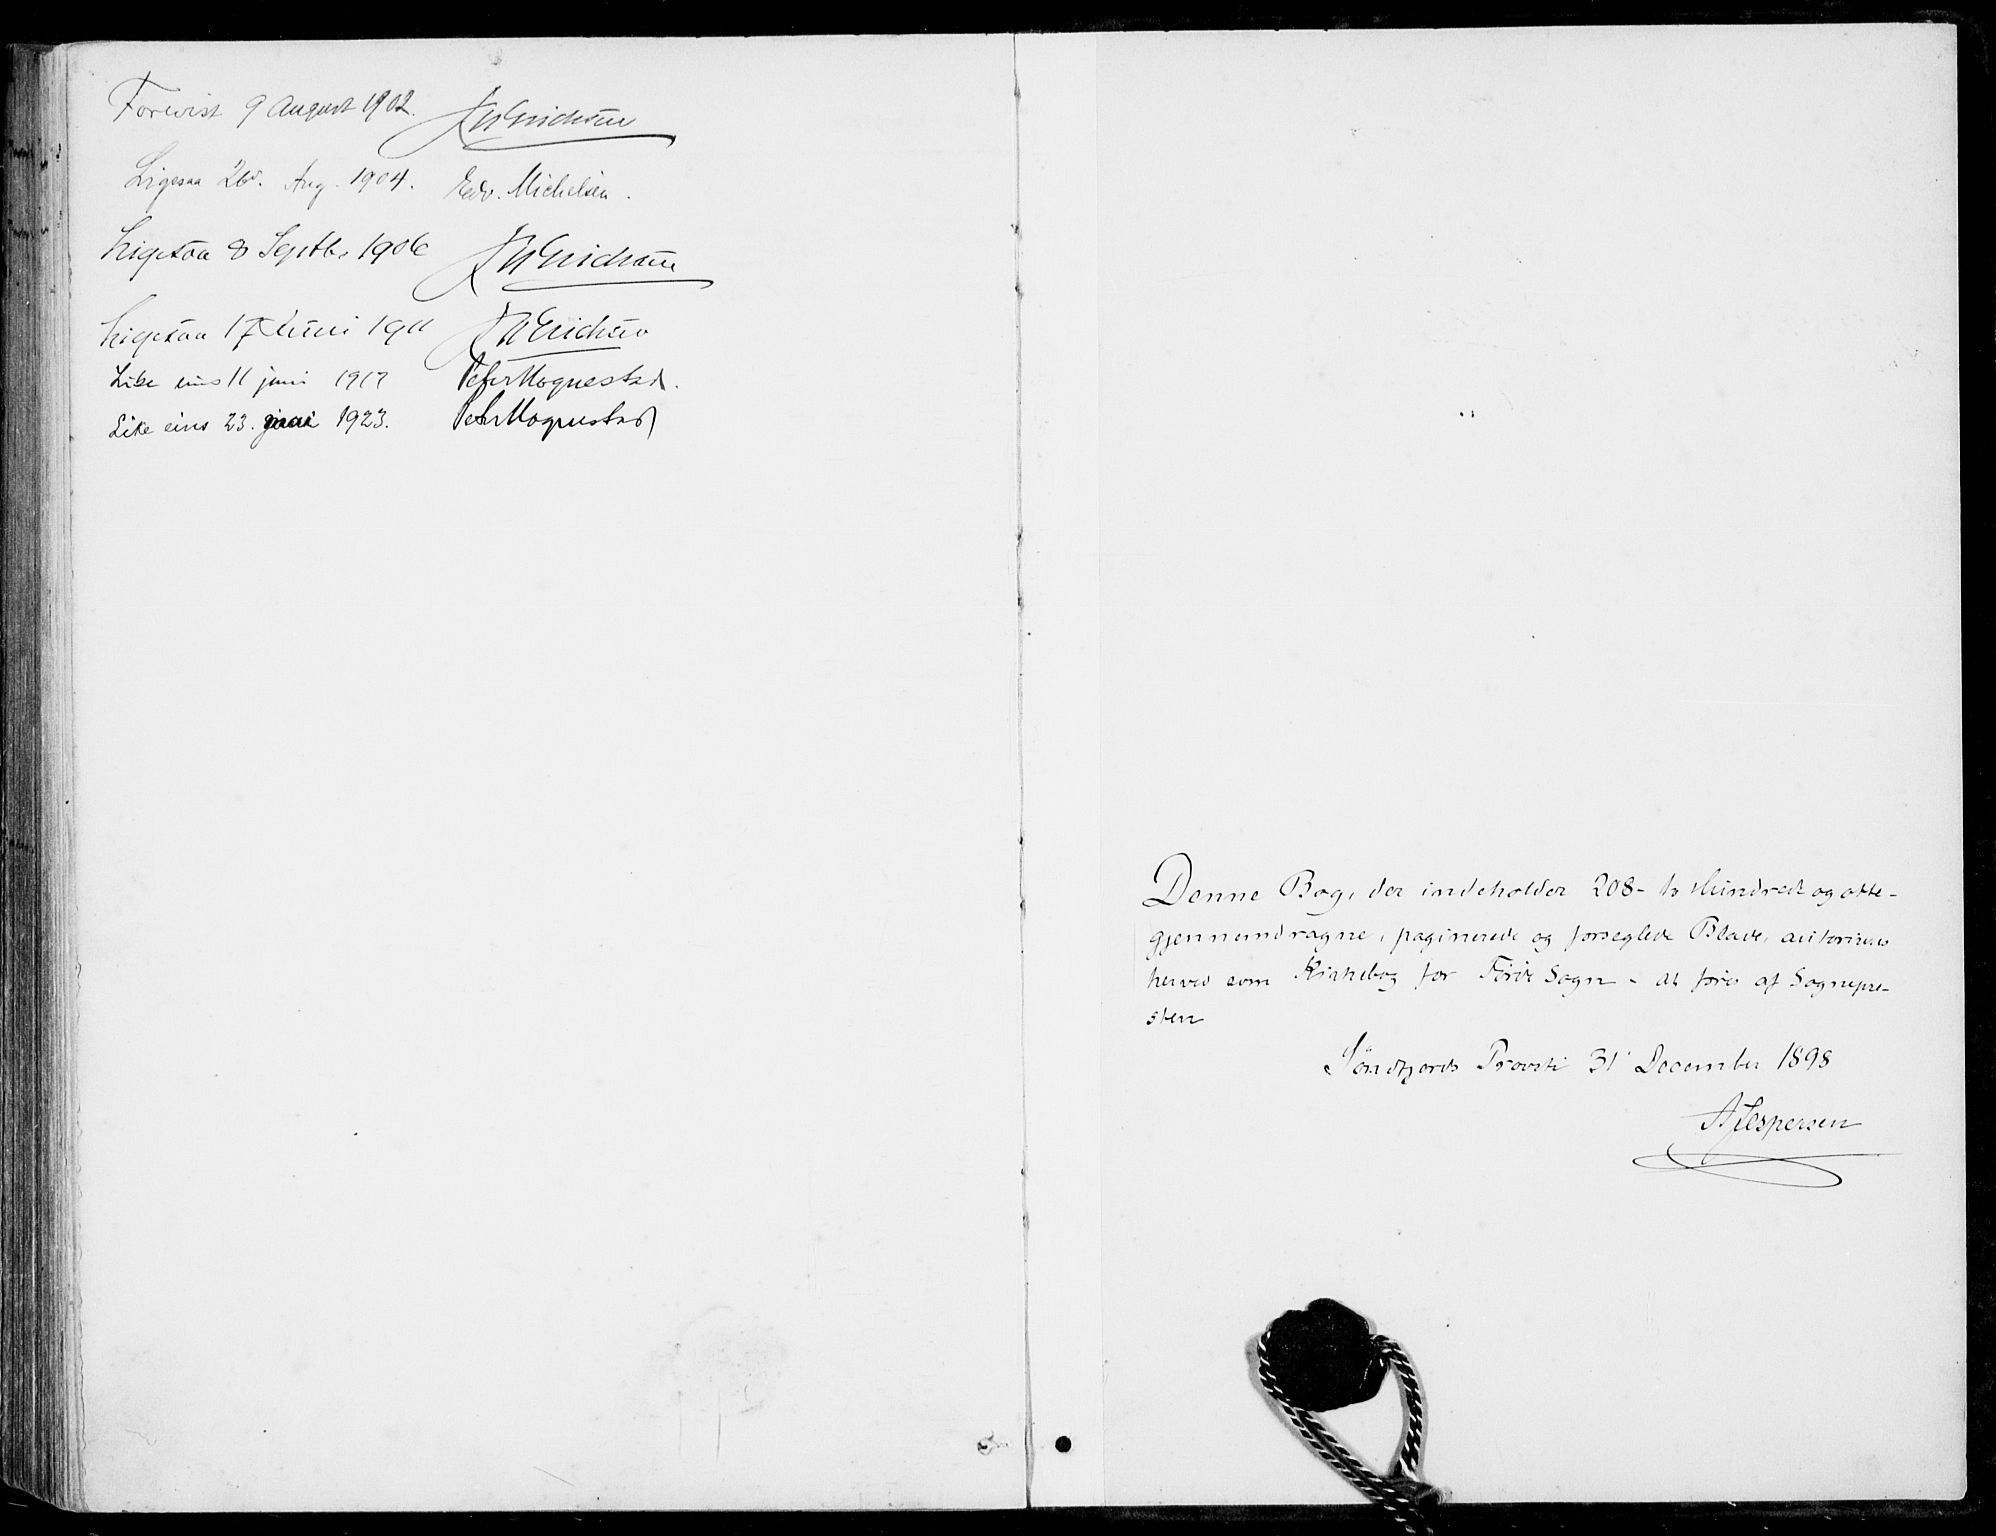 Forevist 9 August 1902. J W Erichsen
Ligesaa 26d. Aug. 1904. Edv. Michelsen.
Ligesaa 8 Septbr 1906 J W Erichsen
Ligesaa 17 Juni 1911 J W Erichsen
Like eins 11 juni 1917 Peter Mognestad.
Like eins 23. mai 1923. Peter Mognestad
Denne Bog, der indeholder 208 - to Hundrede og otte -
gjennemdragne, paginerede og forseglede Blade, autoriseres
herved som Kirkebog for Förde Sogn - at föres af Sognepre-
sten
Söndfjords Provsti 31 December 1898
A Jespersen